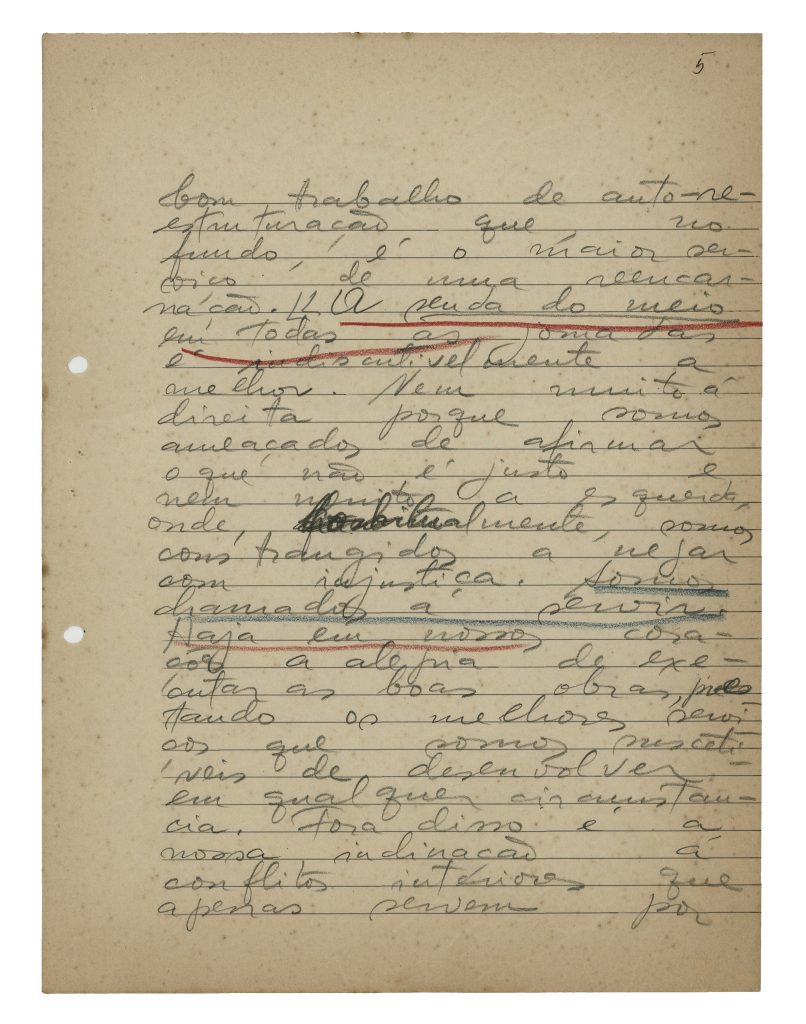 5
bom trabalho de auto-re-
estruturação que, no
fundo, é o maior ser-
viço de uma reencar-
nação. A senda do meio
em todas as jornadas
é indiscutivelmente a
melhor. Nem muito á
direita porque somos
ameaçados de afirmar
o que não é justo e
nem muito a esquerda,
onde, habitualmente, somos
constrangidos a negar
com injustiça. Somos
chamados a servir.
Haja em nosso cora-
ção a alegria de exe-
cutar as boas obras, pres
tando os melhores servi
ços que somos susceti
veis de desenvolver
em qualquer circunstan-
cia. Fora disso é a
nossa inclinação á
conflitos intériores que
apenas servem por